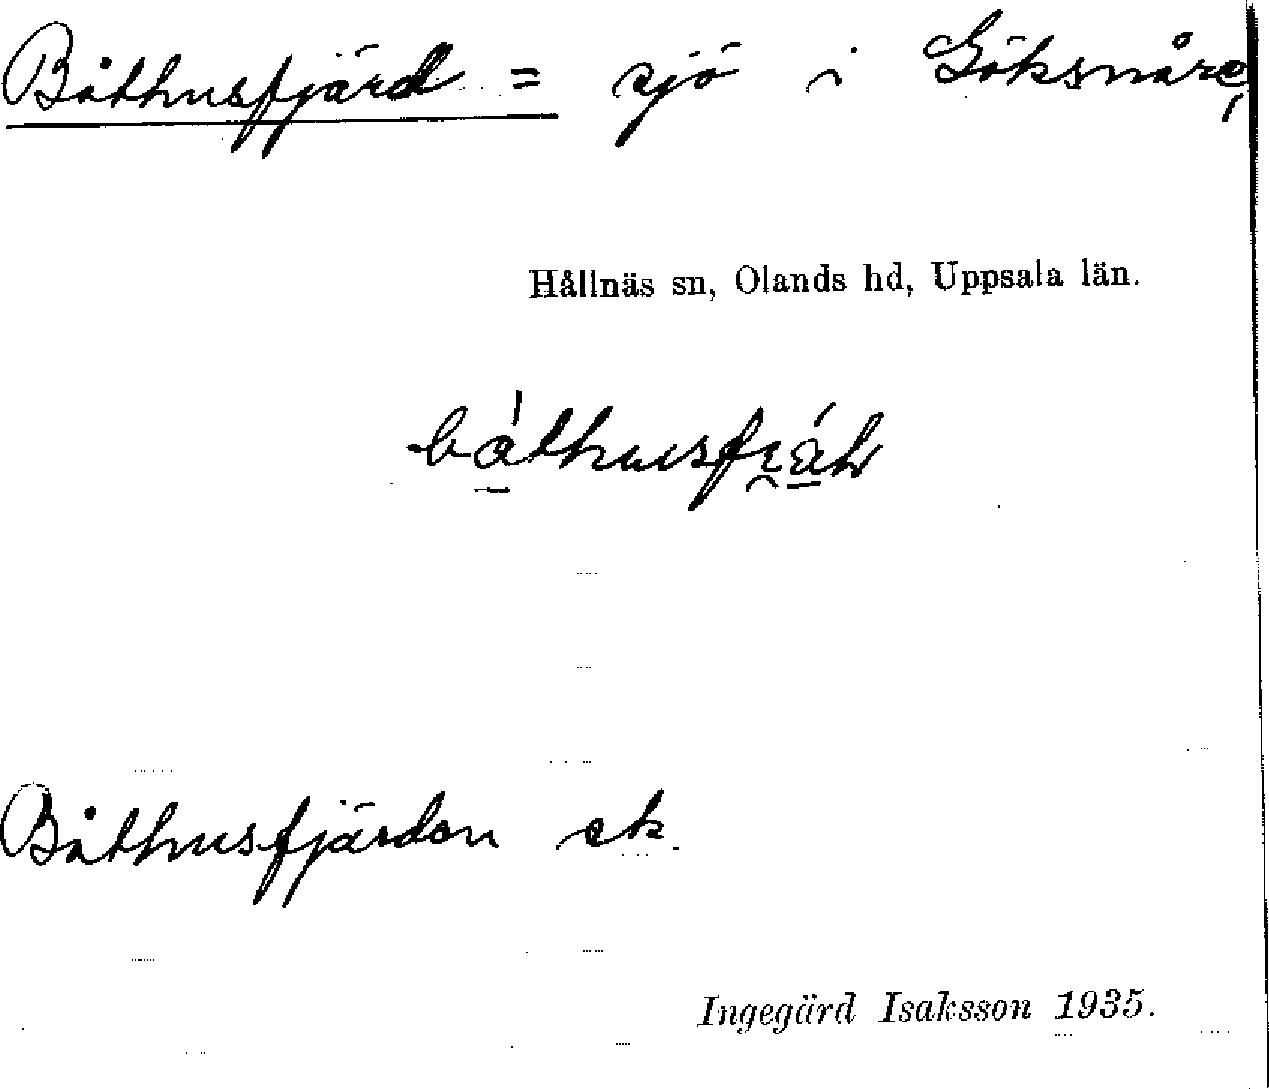 Båthusfjärd = sjö i Göksnåre,
Hållnäs sn, Olands hd, Uppsala län.
Båthusfjärden ek.
Ingegärd Isaksson 1935.